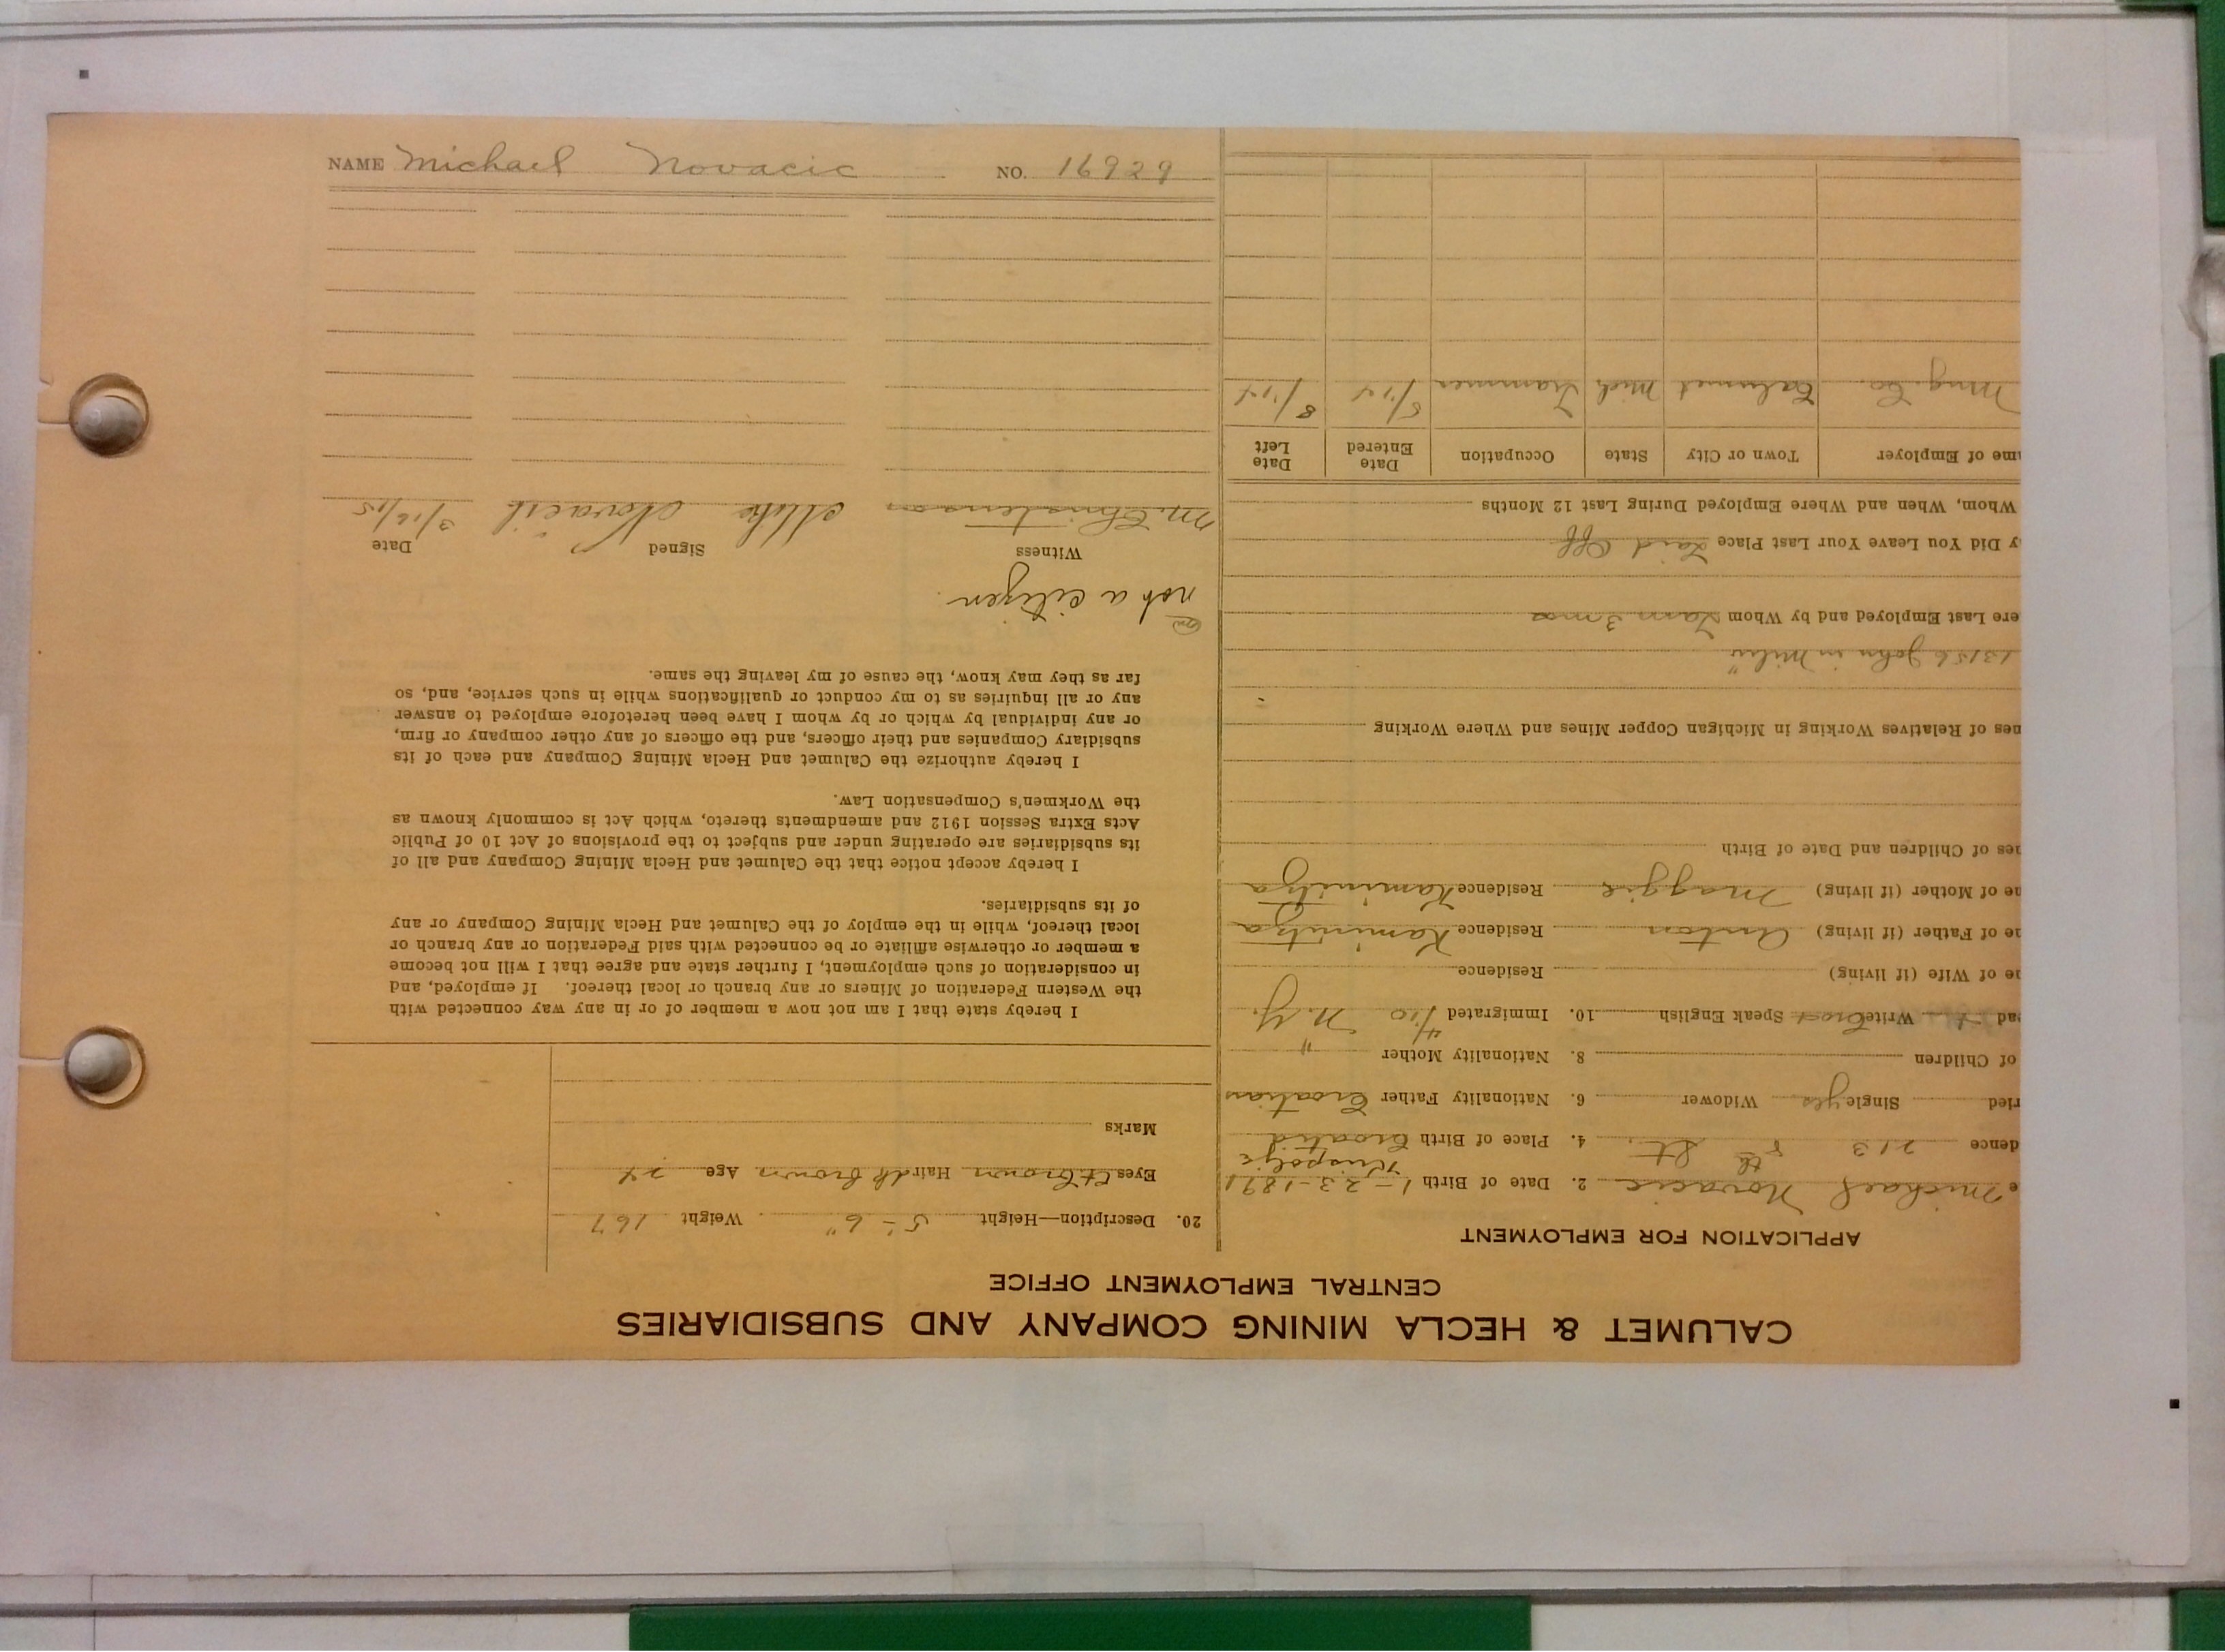 CALUMET & HECLA MINING COMPANY AND SUBSIDIARIES
CENTRAL EMPLOYMENT OFFICE
APPLICATION FOR EMPLOYMENT
e Michael Novacic 2. Date of Birth 1-23-1891
dence 213 8th St. 4. Place of Birth Croatia
ried Single yes Widower 6. Nationality Father Croatian
of Children 8. Nationality Mother "
ead Write Croat Speak English 10. Immigrated 4/10 N.Y.
me of Wife (if living) Residence
me of Father (if living) Anton Residence
me of Mother (if living) Maggie Residence
nes of Children and Date of Birth
nes of Relatives Working in Michigan Copper Mines and Where Working
13156 John in
ere Last Employed and by Whom 3 mo
y Did You Leave Your Last Place Laid Off
Whom, When and Where Employed During Last 12 Months
me of Employer Town or City State Occupation Date Entered Date Left
Mng. Co. Calumet Mich Trammer 5/14 8/14
20. Description—Height 5-6" Weight 167
Eyes Lt Brown Hair dk brown Age 24
Marks
I hereby state that I am not now a member of or in any way connected with
the Western Federation of Miners or any branch or local thereof. If employed, and
in consideration of such employment, I further state and agree that I will not become
a member or otherwise affiliate or be connected with said Federation or any branch or
local thereof, while in the employ of the Calumet and Hecla Mining Company or any
of its subsidiaries.
I hereby accept notice that the Calumet and Hecla Mining Company and all of
its subsidiaries are operating under and subject to the provisions of Act 10 of Public
Acts Extra Session 1912 and amendments thereto, which Act is commonly known as
the Workmen's Compensation Law.
I hereby authorize the Calumet and Hecla Mining Company and each of its
subsidiary Companies and their officers, and the officers of any other company or firm,
or any individual by which or by whom I have been heretofore employed to answer
any or all inquiries as to my conduct or qualifications while in such service, and, so
far as they may know, the cause of my leaving the same.
not a citizen.
Witness Signed Date
M. Christensen Mike Novacic 3/16/15
NAME Michael Novacic NO. 16929